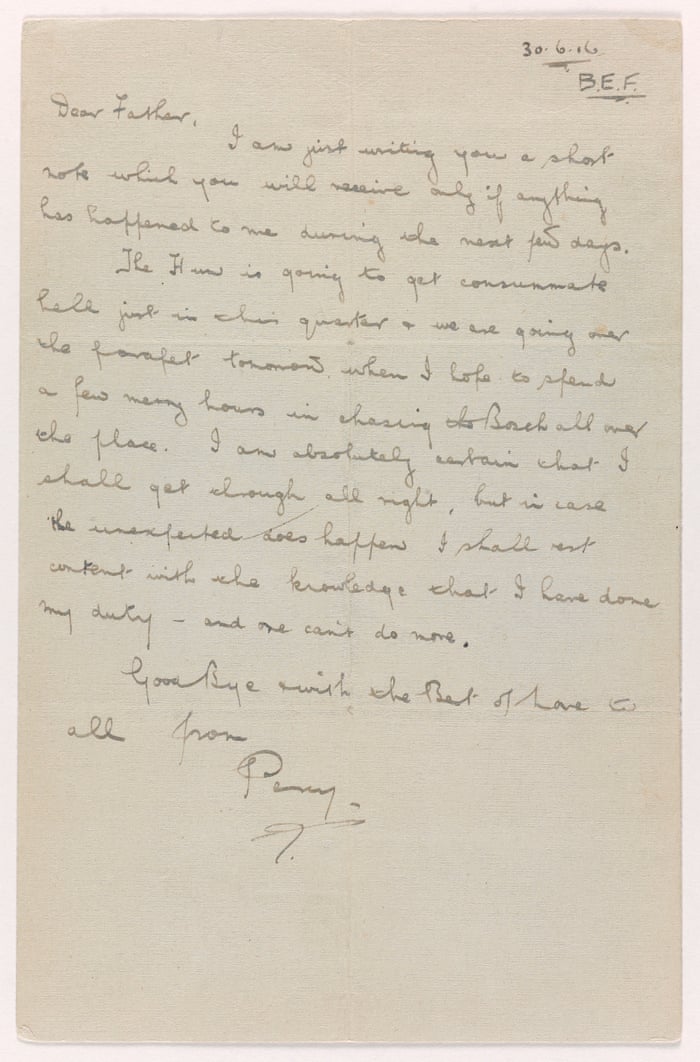 30.6.16
B.E.F.
Dear Father,
I am just writing you a short
note which you will receive only if anything
has happened to me during the next few days.
The Hun is going to get consummate
hell just in this quarter & we are going over
the parapet tomorrow when I hope to spend
a few merry hours in chasing the Bosch all over
the place. I am absolutely certain that I
shall get through all right, but in case
the unexpected does happen I shall rest
content with the knowledge that I have done
my duty – and one can't do more.
Good Bye & with the Best of Love to
all from
Percy.